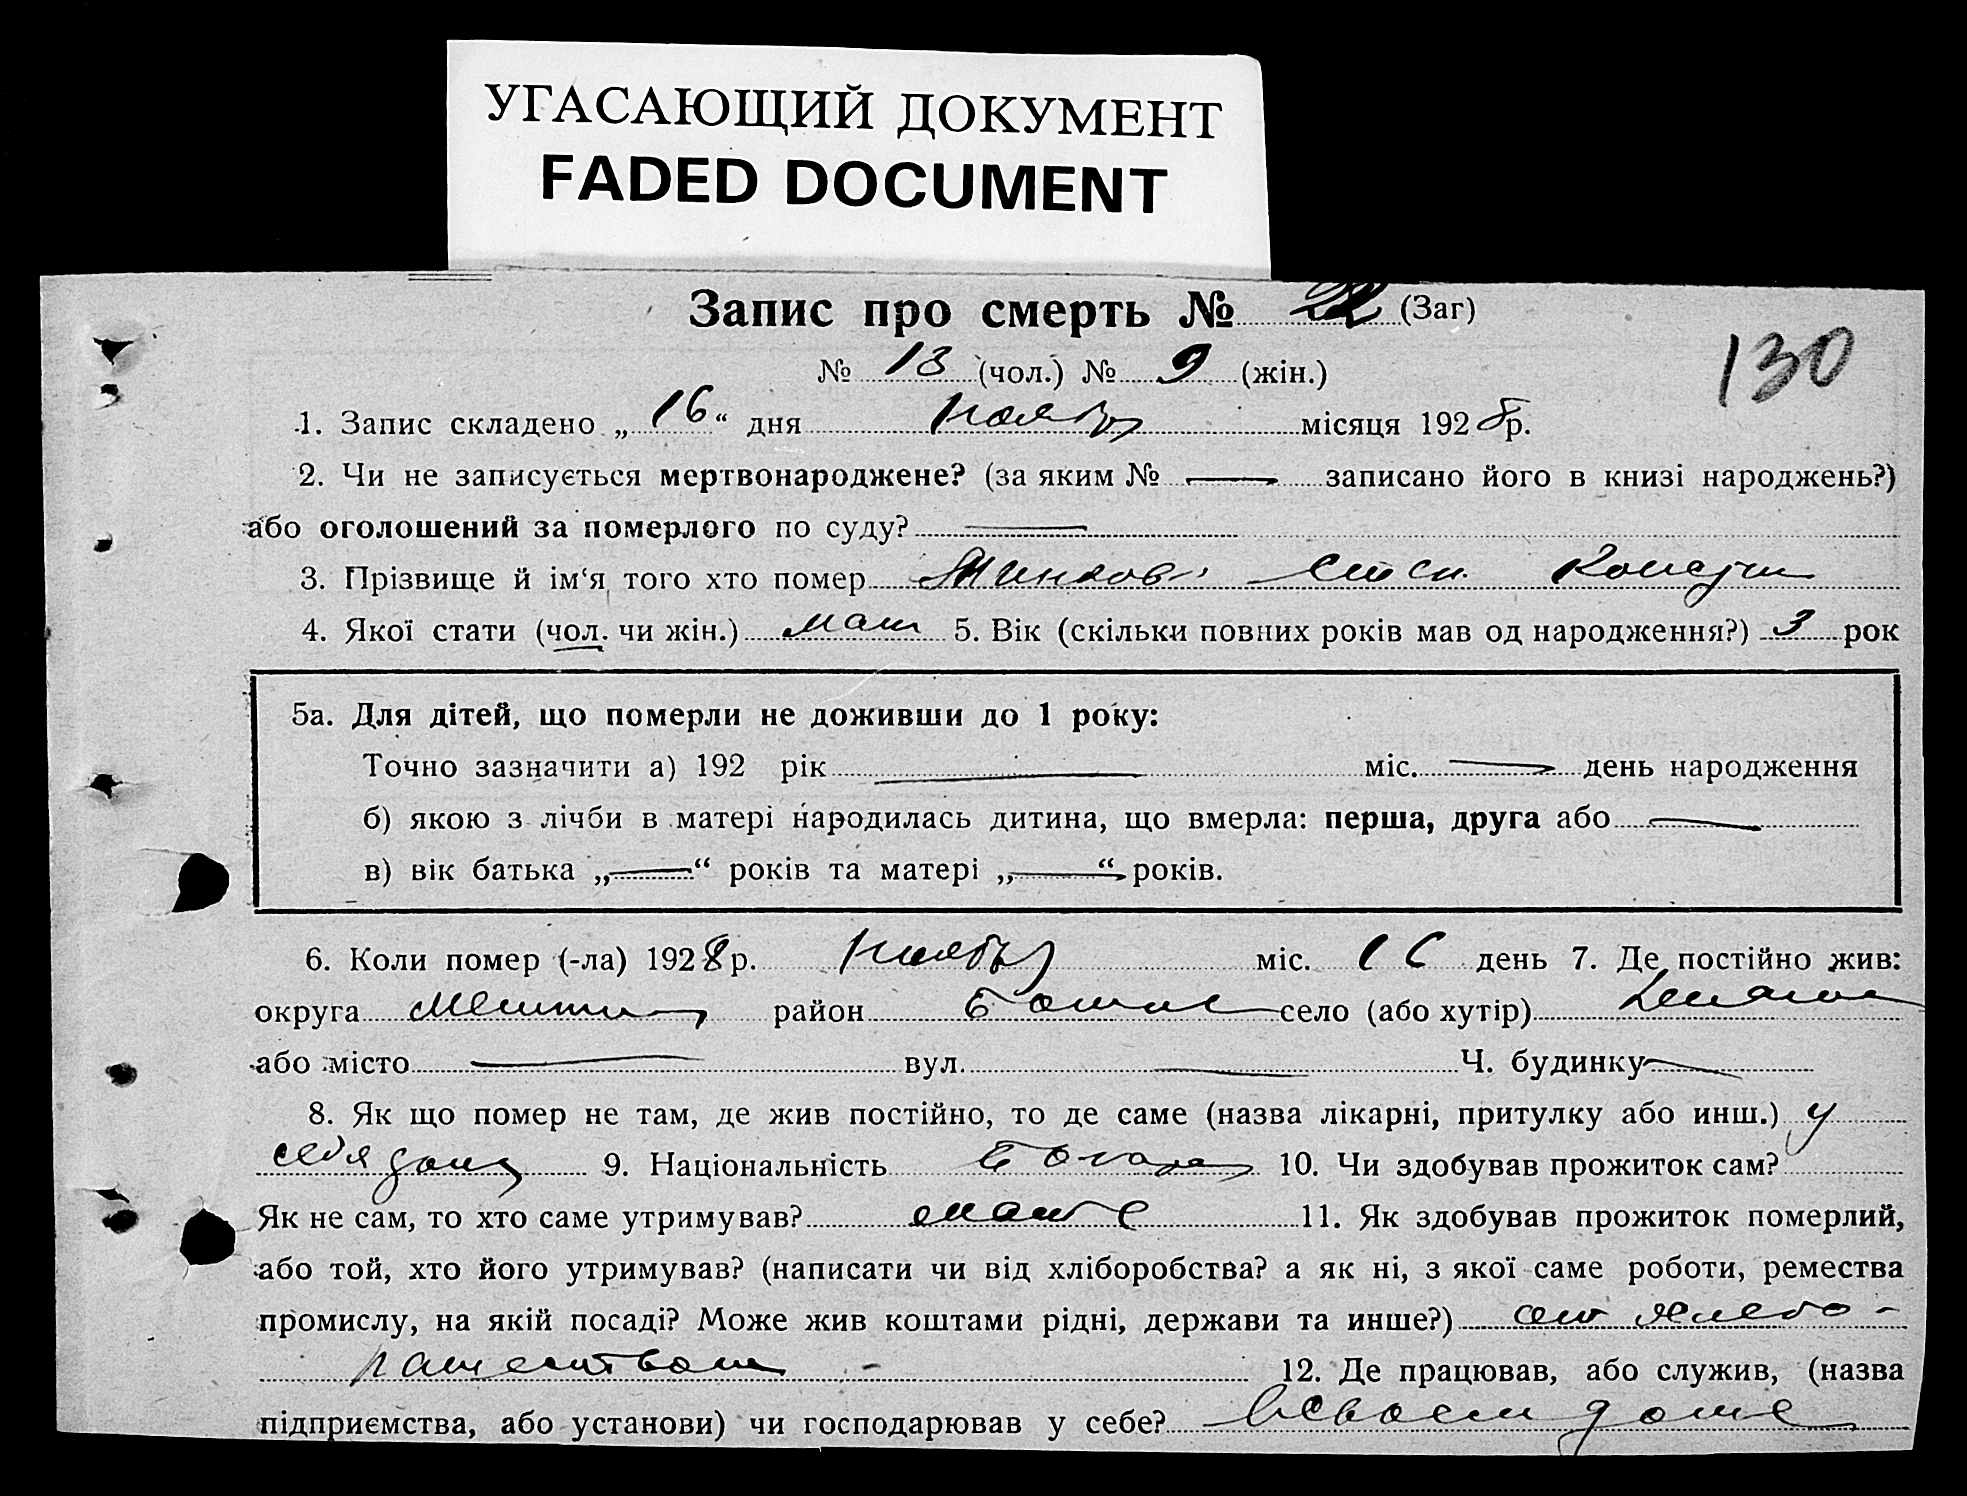 УГАСАЮЩИЙ ДОКУМЕНТ
FADED DOCUMENT
Запис про смерть № 22 (Заг)
№ 13 (чол.) № 9 (жін.)
130
1. Запис складено „16“ дня ноября місяця 1928р.
2. Чи не записується мертвонароджене? (за яким № — записано його в книзі народжень?)
або оголошений за померлого по суду? —
3. Прізвище й ім‘я того хто помер
4. Якої стати (чол. чи жін.) 5. Вік (скільки повних років мав од народження?) 3 рок
5а. Для дітей, що померли не доживши до 1 року:
Точно зазначити а) 192 рік — міс. — день народження
б) якою з лічби в матері народилась дитина, що вмерла: перша, друга або —
в) вік батька „—“ років та матері „—“ років.
6. Коли помер (-ла) 1928р. ноября міс. 16 день 7. Де постійно жив:
округа район село (або хутір)
або місто — вул. — Ч. будинку —
8. Як що помер не там, де жив постійно, то де саме (назва лікарні, притулку або инш.) у
себя дома 9. Національність 10. Чи здобував прожиток сам?
Як не сам, то хто саме утримував? 11. Як здобував прожиток померлий,
або той, хто його утримував? (написати чи від хліборобства? а як ні, з якої саме роботи, ремества
промислу, на якій посаді? Може жив коштами рідні, держави та инше?) хлебо-
пашеством - 12. Де працював, або служив, (назва
підприємства, або установи) чи господарював у себе? в своем доме